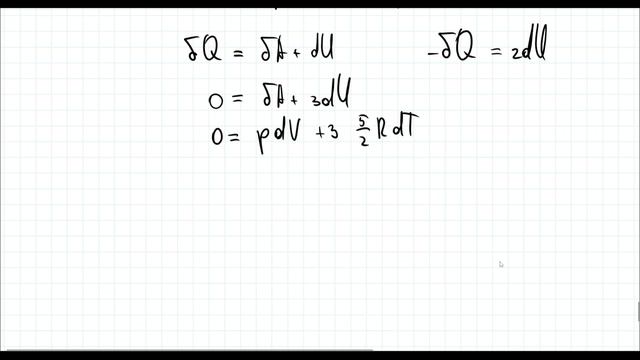 δQ = δA + dU -δQ = 2dU
0 = δA + 3dU
0 = pdV + 3 5/2 R dT